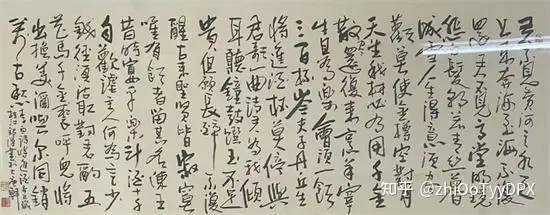 君不見黃河之水天
上來奔流到海不復
回君不見高堂明鏡
悲白髮朝如青絲暮
成雪人生得意須盡
歡莫使金樽空對月
天生我材必有用千金
散盡還復來烹羊宰
牛且為樂會須一飲
三百杯岑夫子丹丘生
將進酒杯莫停與
君歌一曲請君為我傾
耳聽鐘鼓饌玉不足
貴但願長醉不復
醒古來聖賢皆寂寞
唯有飲者留其名陳王
昔時宴平樂斗酒十千
恣歡謔主人何為言少
錢徑須沽取對君酌五
花馬千金裘呼兒將
出換美酒與爾同銷
萬古愁
李白詩將進酒
知乎 @zhiOoTyyDPX